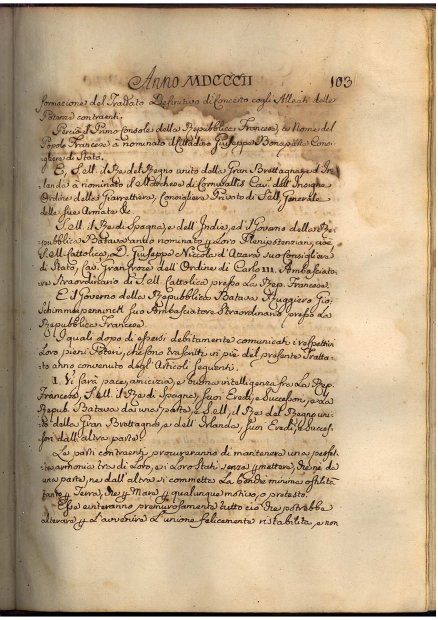 Anno MDCCCII 103
formazione del Trattato Definitivo di Concerto cogli Alleati delle
Potenze contraenti.
Perciò il Primo Console della Repubblica Francese, a Nome del
Popolo Francese a nominato il Cittadino Giuseppe Bonaparte Consi-
gliere di Stato.
E, S. ell. il Re del Regno unito della Gran Brettagna, e d'Ir-
landa a nominato il Marchese di Cornwallis Cav. dell' Insigne
Ordine della Giarrettiera, Consigliere Privato di S. ell. Generale
delle sue Armate &
S. ell. il Re di Spagna, e dell' Indie, ed il Governo della Re-
pubblica Batava anno nominato y Loro Plenipotenziari, cioè
S. ell. Cattolica, D. Giuseppe Niccola d' Azzara Suo Consigliere
di Stato, Cav. Gran Croce dell' Ordine di Carlo III. Ambasciato-
re Straordinario di S. ell. Cattolica presso la Rep. Francese.
E il Governo della Repubblica Batava Ruggiero Gio.
Schimmelpenninck suo Ambasciatore Straordinario presso la
Repubblica Francese.
I quali dopo di essersi debitamente comunicati i respettivi
Loro pieni Poteri, che sono trascritti in piè del presente Tratta-
to anno convenuto degli Articoli seguenti.
I. Vi sarà pace, amicizia, e buona intelligenza fra la Rep.
Francese, S. ell. il Re di Spagna, suoi Eredi, e Successori, e la
Repub. Batava da una parte, e S. ell. il Re del Regno uni-
to della Gran Brettagna, e dell' Irlanda, suoi Eredi, e Succes-
sori dall' altra parte.
Le parti contraenti procureranno di mantenere una perfet-
ta armonia tra di Loro, e i Loro Stati senza permettere, che ne da
una parte, ne dall' altra si commetta La benche minima ostilità
tanto y Terra, che y Mare y qualunque motivo, o pretesto.
Esse eviteranno premurosamente tutto ciò che potrebbe
alterare y L'avvenire L'unione felicemente ristabilita, e non